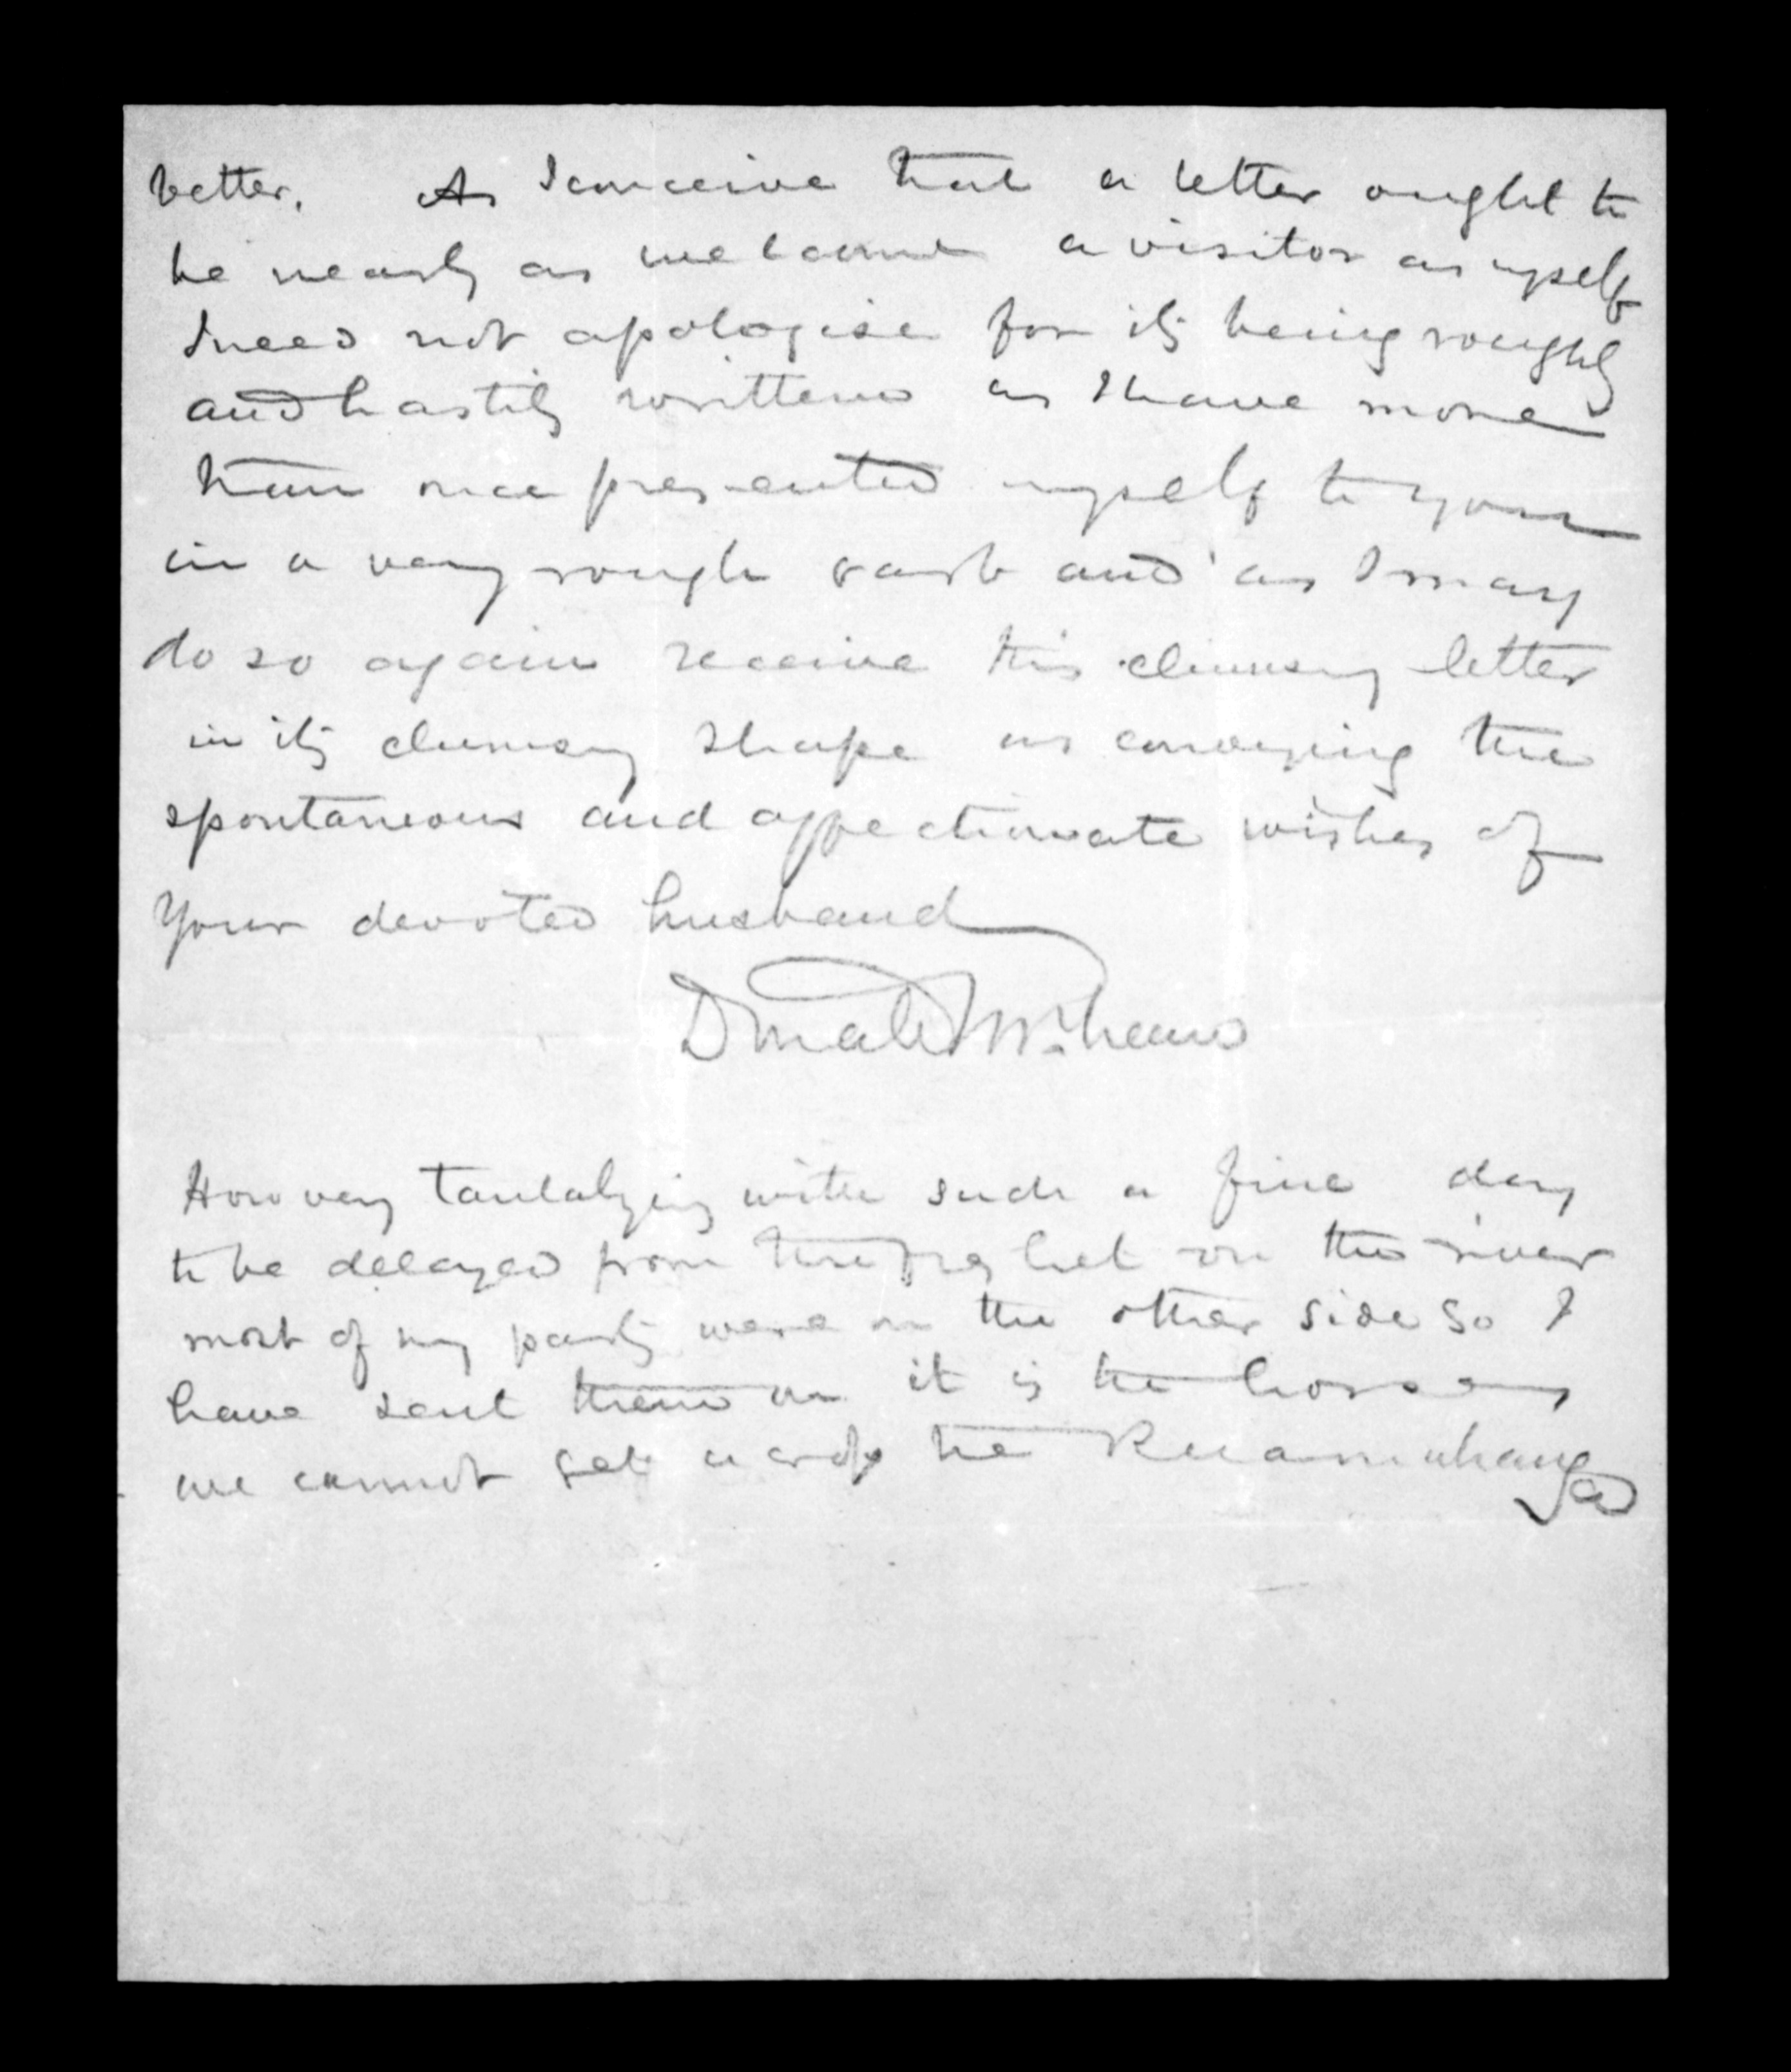 better. As I conceive that a letter ought to
be nearly as welcome a visitor as myself
I need not apologise for its being roughly
and hastily written as I have more
than once presented myself to you
in a very rough garb and as I may
do so again receive this clumsy letter
in its clumsy shape as conveying the
spontaneous and affectionate wishes of
Your devoted husband
Donald McLean
How very tantalizing with such a fine day
to be delayed from the fresh on the river
most of my party were on the other side so I
have sent them on it is the horses
we cannot get across the Ruamahanga